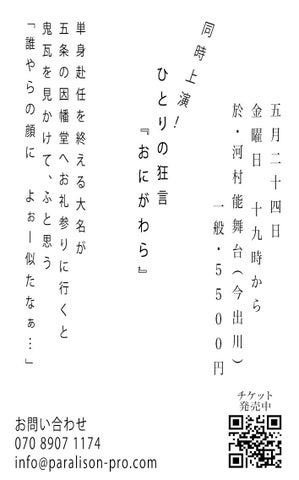 五月二十四日
金曜日　十九時から
於・河村能舞台（今出川）
一般・5500円
同時上演！
ひとりの狂言
『おにがわら』
単身赴任を終える大名が
五条の因幡堂へお礼参りに行くと
鬼瓦を見かけて、ふと思う
「誰やらの顔に　よぉー似たなぁ…」
チケット
発売中
お問い合わせ
070 8907 1174
info@paralison-pro.com